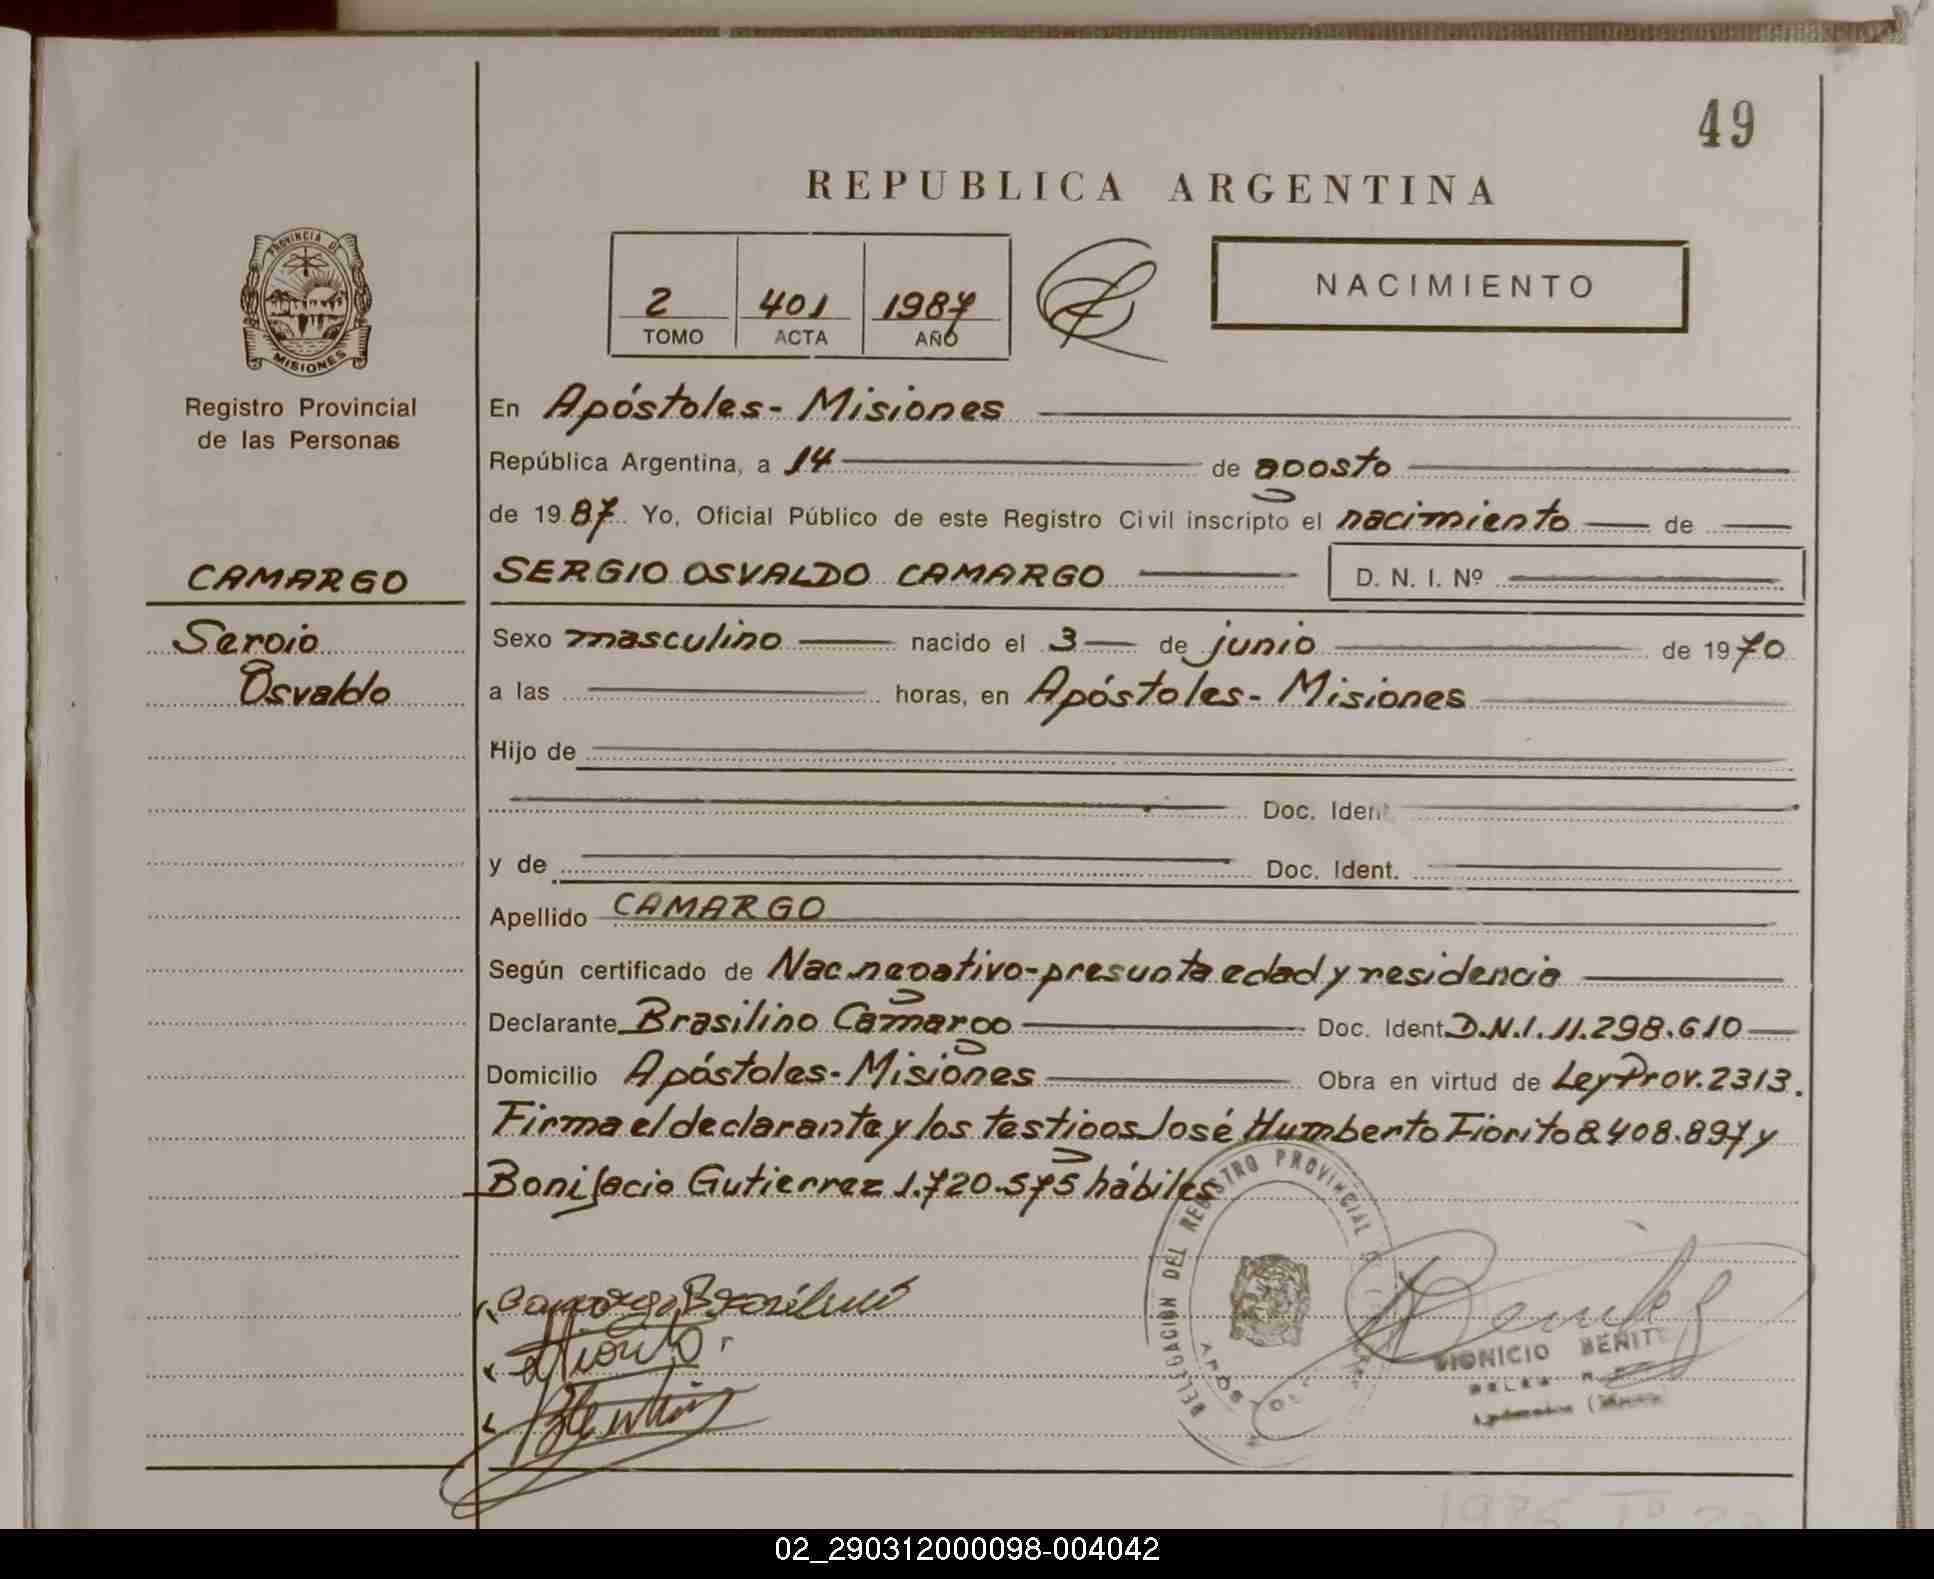 49
REPUBLICA ARGENTINA
PROVINCIA DE
MISIONES
2 401 1987
TOMO ACTA AÑO
NACIMIENTO
Registro Provincial
de las Personas
En Apóstoles - Misiones
República Argentina, a 14 de agosto
de 1987 Yo, Oficial Público de este Registro Civil inscripto el nacimiento de
CAMARGO
SERGIO OSVALDO CAMARGO D. N. I. Nº
Sergio
Osvaldo
Sexo masculino nacido el 3 de junio de 1970
a las horas, en Apóstoles - Misiones
Hijo de
Doc. Ident
y de Doc. Ident.
Apellido CAMARGO
Según certificado de Nac. negativo - presunta edad y residencia
Declarante Brasilino Camargo Doc. Ident. D.N.I. 11.298.610
Domicilio Apóstoles - Misiones Obra en virtud de Ley Prov. 2313.
Firma el declarante y los testigos José Humberto Fiorito 8.408.897 y
Bonifacio Gutierrez 1.720.575 hábiles
DELEGACION DEL REGISTRO PROVINCIAL
Camargo Brasilino
DIONICIO BENITEZ
02_290312000098-004042